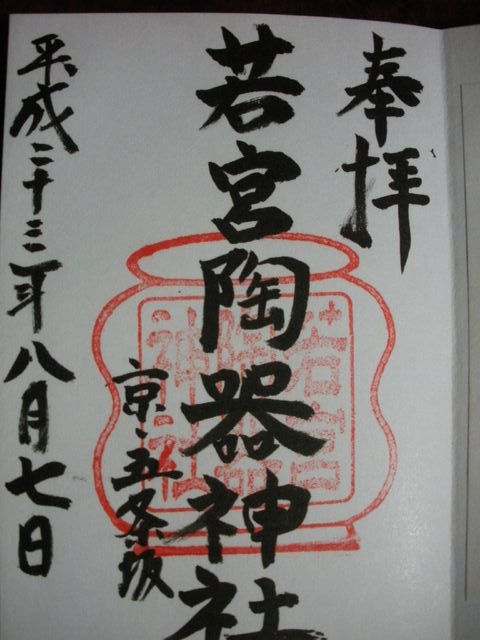 奉拝
若宮陶器神社
京・五条坂
平成二十三年八月七日
若宮
陶器
神社